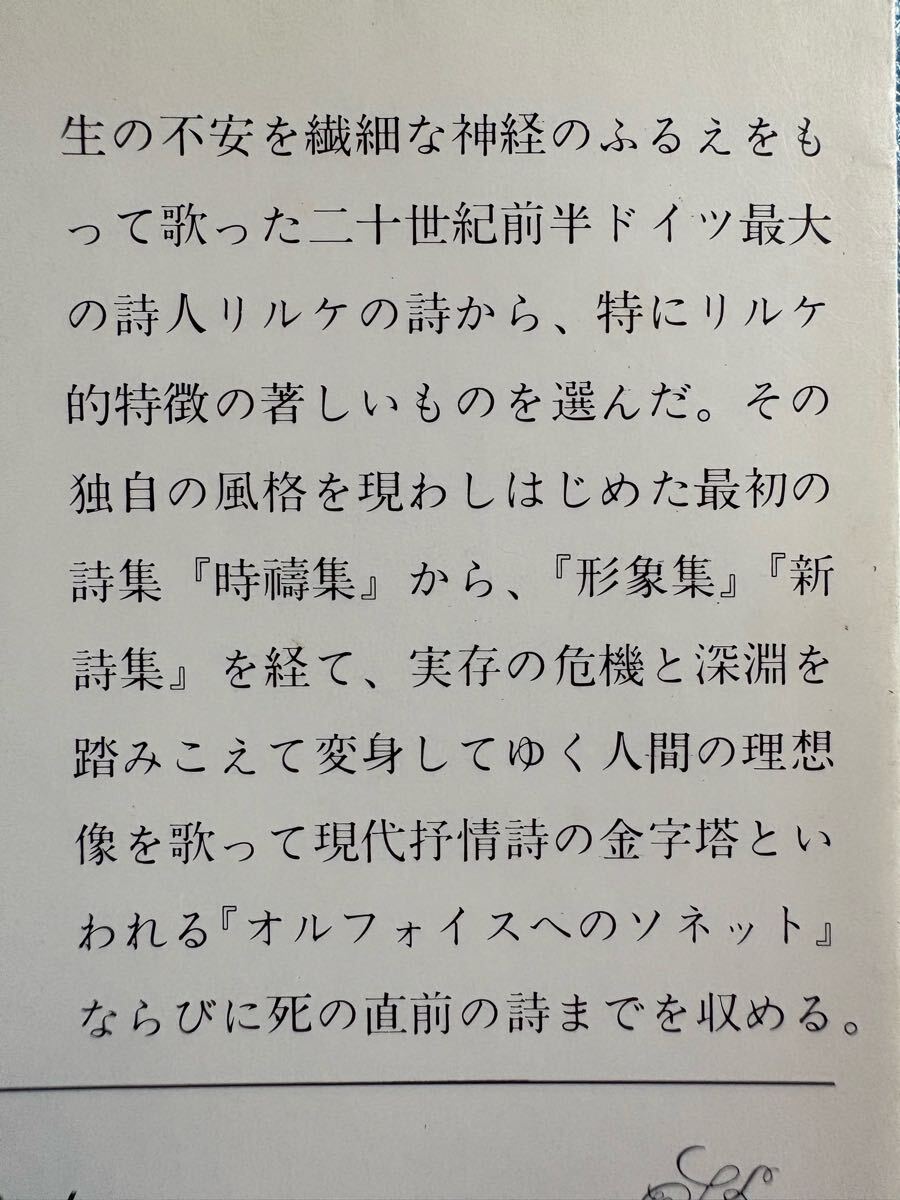 生の不安を繊細な神経のふるえをも
って歌った二十世紀前半ドイツ最大
の詩人リルケの詩から、特にリルケ
的特徴の著しいものを選んだ。その
独自の風格を現わしはじめた最初の
詩集『時禱集』から、『形象集』『新
詩集』を経て、実存の危機と深淵を
踏みこえて変身してゆく人間の理想
像を歌って現代抒情詩の金字塔とい
われる『オルフォイスへのソネット』
ならびに死の直前の詩までを収める。